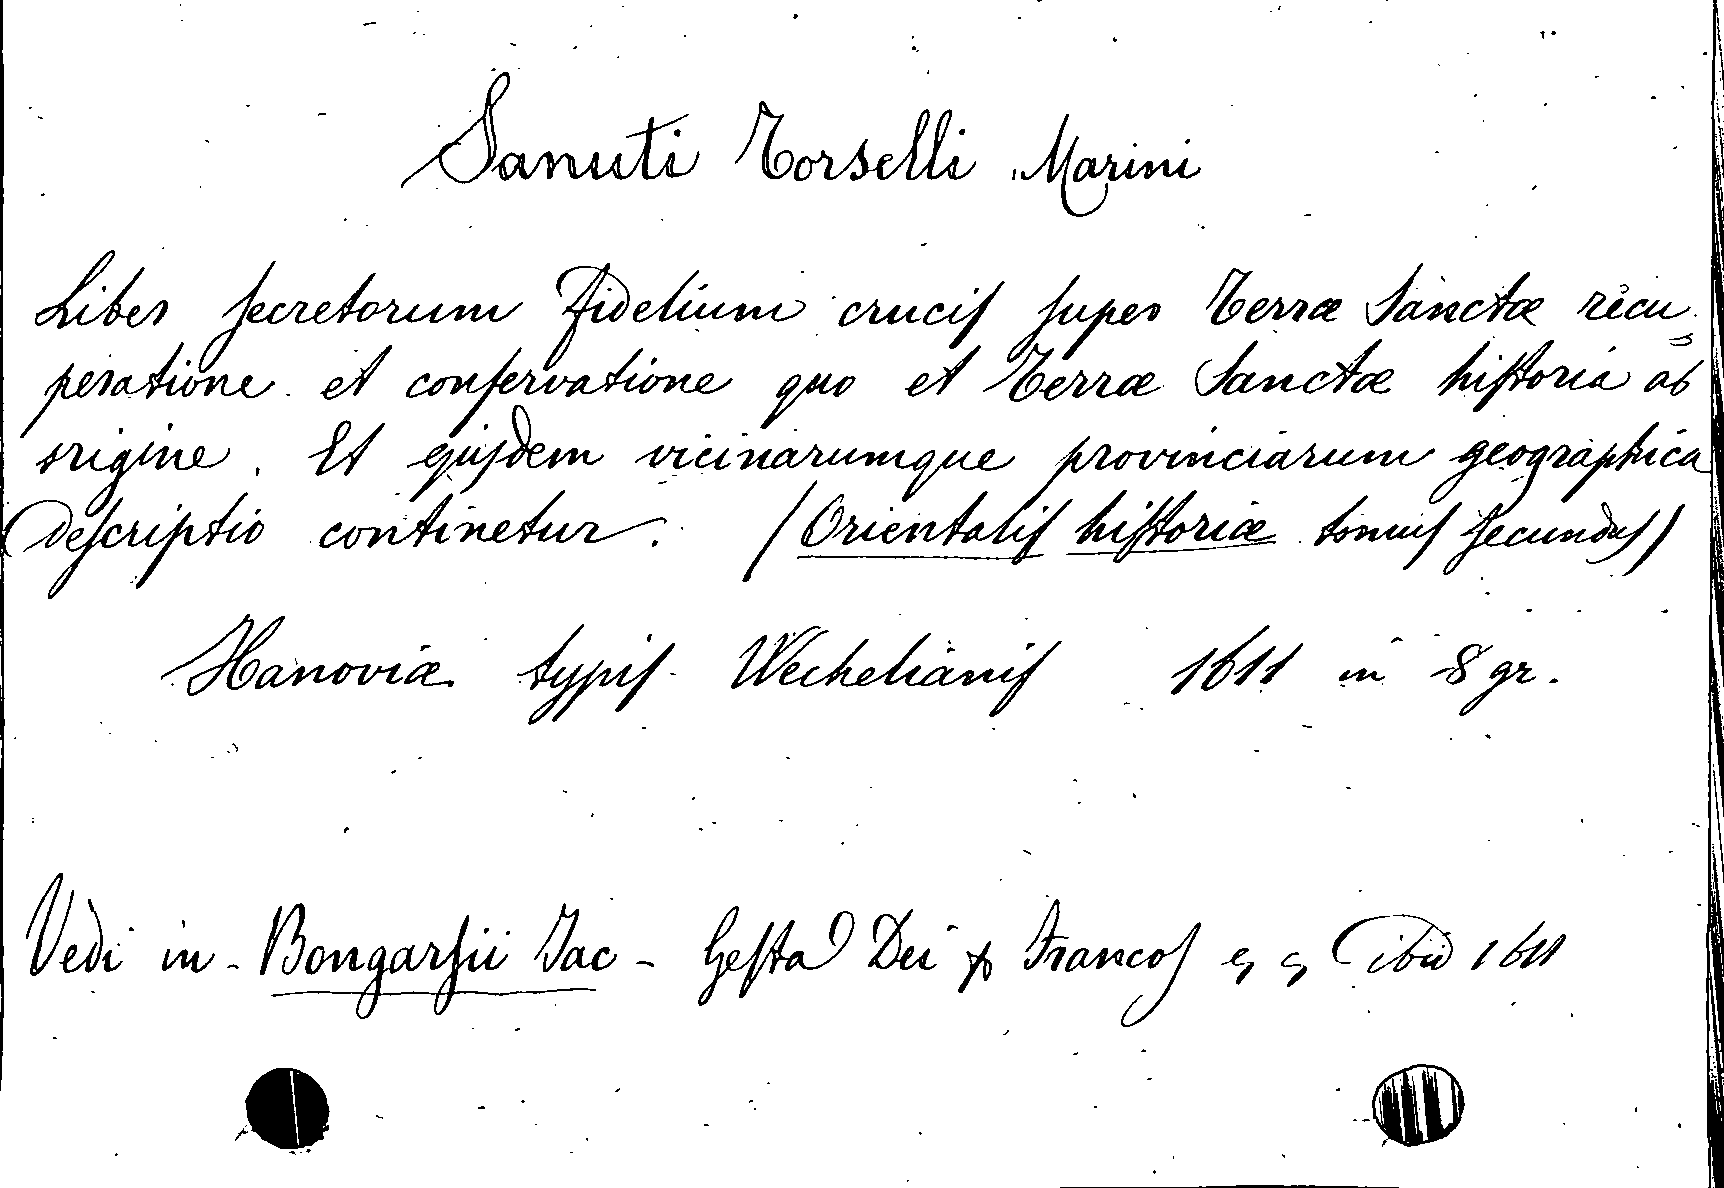 Sanuti Torselli Marini
Liber secretorum Fidelium crucis super Terræ Sanctæ recu=
peratione et conservatione quo et Terræ Sanctæ historia ab
origine. Et ejusdem vicinarumque provinciarum geographica
descriptio continetur. (Orientalis historiæ tomus secundus)
Hanoviæ typis Wechelianis 1611 in 8 gr.
Vedi in - Bongarsii Jac - Gesta Dei p Francos ibid 1611